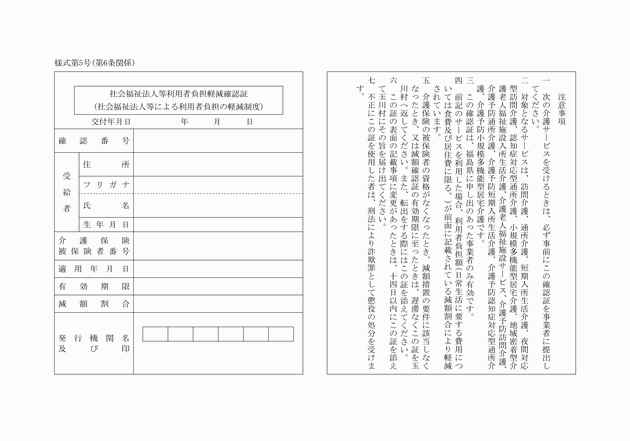 様式第5号(第6条関係)
社会福祉法人等利用者負担軽減確認証
(社会福祉法人等による利用者負担の軽減制度)
交付年月日　　　年　　月　　日
確認番号
受給者
住所
フリガナ
氏名
生年月日
介護保険
被保険者番号
適用年月日
有効期限
減額割合
発行機関名
及び印
注意事項
一　次の介護サービスを受けるときは、必ず事前にこの確認証を事業者に提出し
てください。
二　対象となるサービスは、訪問介護、通所介護、短期入所生活介護、夜間対応
型訪問介護、認知症対応型通所介護、小規模多機能型居宅介護、地域密着型介
護老人福祉施設入所者生活介護、介護老人福祉施設サービス、介護予防訪問介護、
介護予防通所介護、介護予防短期入所生活介護、介護予防認知症対応型通所介
護、介護予防小規模多機能型居宅介護です。
三　この確認証は、福島県に申し出のあった事業者のみ有効です。
四　前記のサービスを利用した場合、利用者負担額(日常生活に要する費用につ
いては食費及び居住費に限る。)が前面に記載されている減額割合により軽減
されています。
五　介護保険の被保険者の資格がなくなったとき、減額措置の要件に該当しなく
なったとき、又は減額確認証の有効期限に至ったときは、遅滞なくこの証を玉
川村へ返してください。また、転出をする際にはこの証を添えてください。
六　この証の表面の記載事項に変更があったときは、十四日以内にこの証を添え
て玉川村にその旨を届け出てください。
七　不正にこの証を使用した者は、刑法により詐欺罪として懲役の処分を受けま
す。